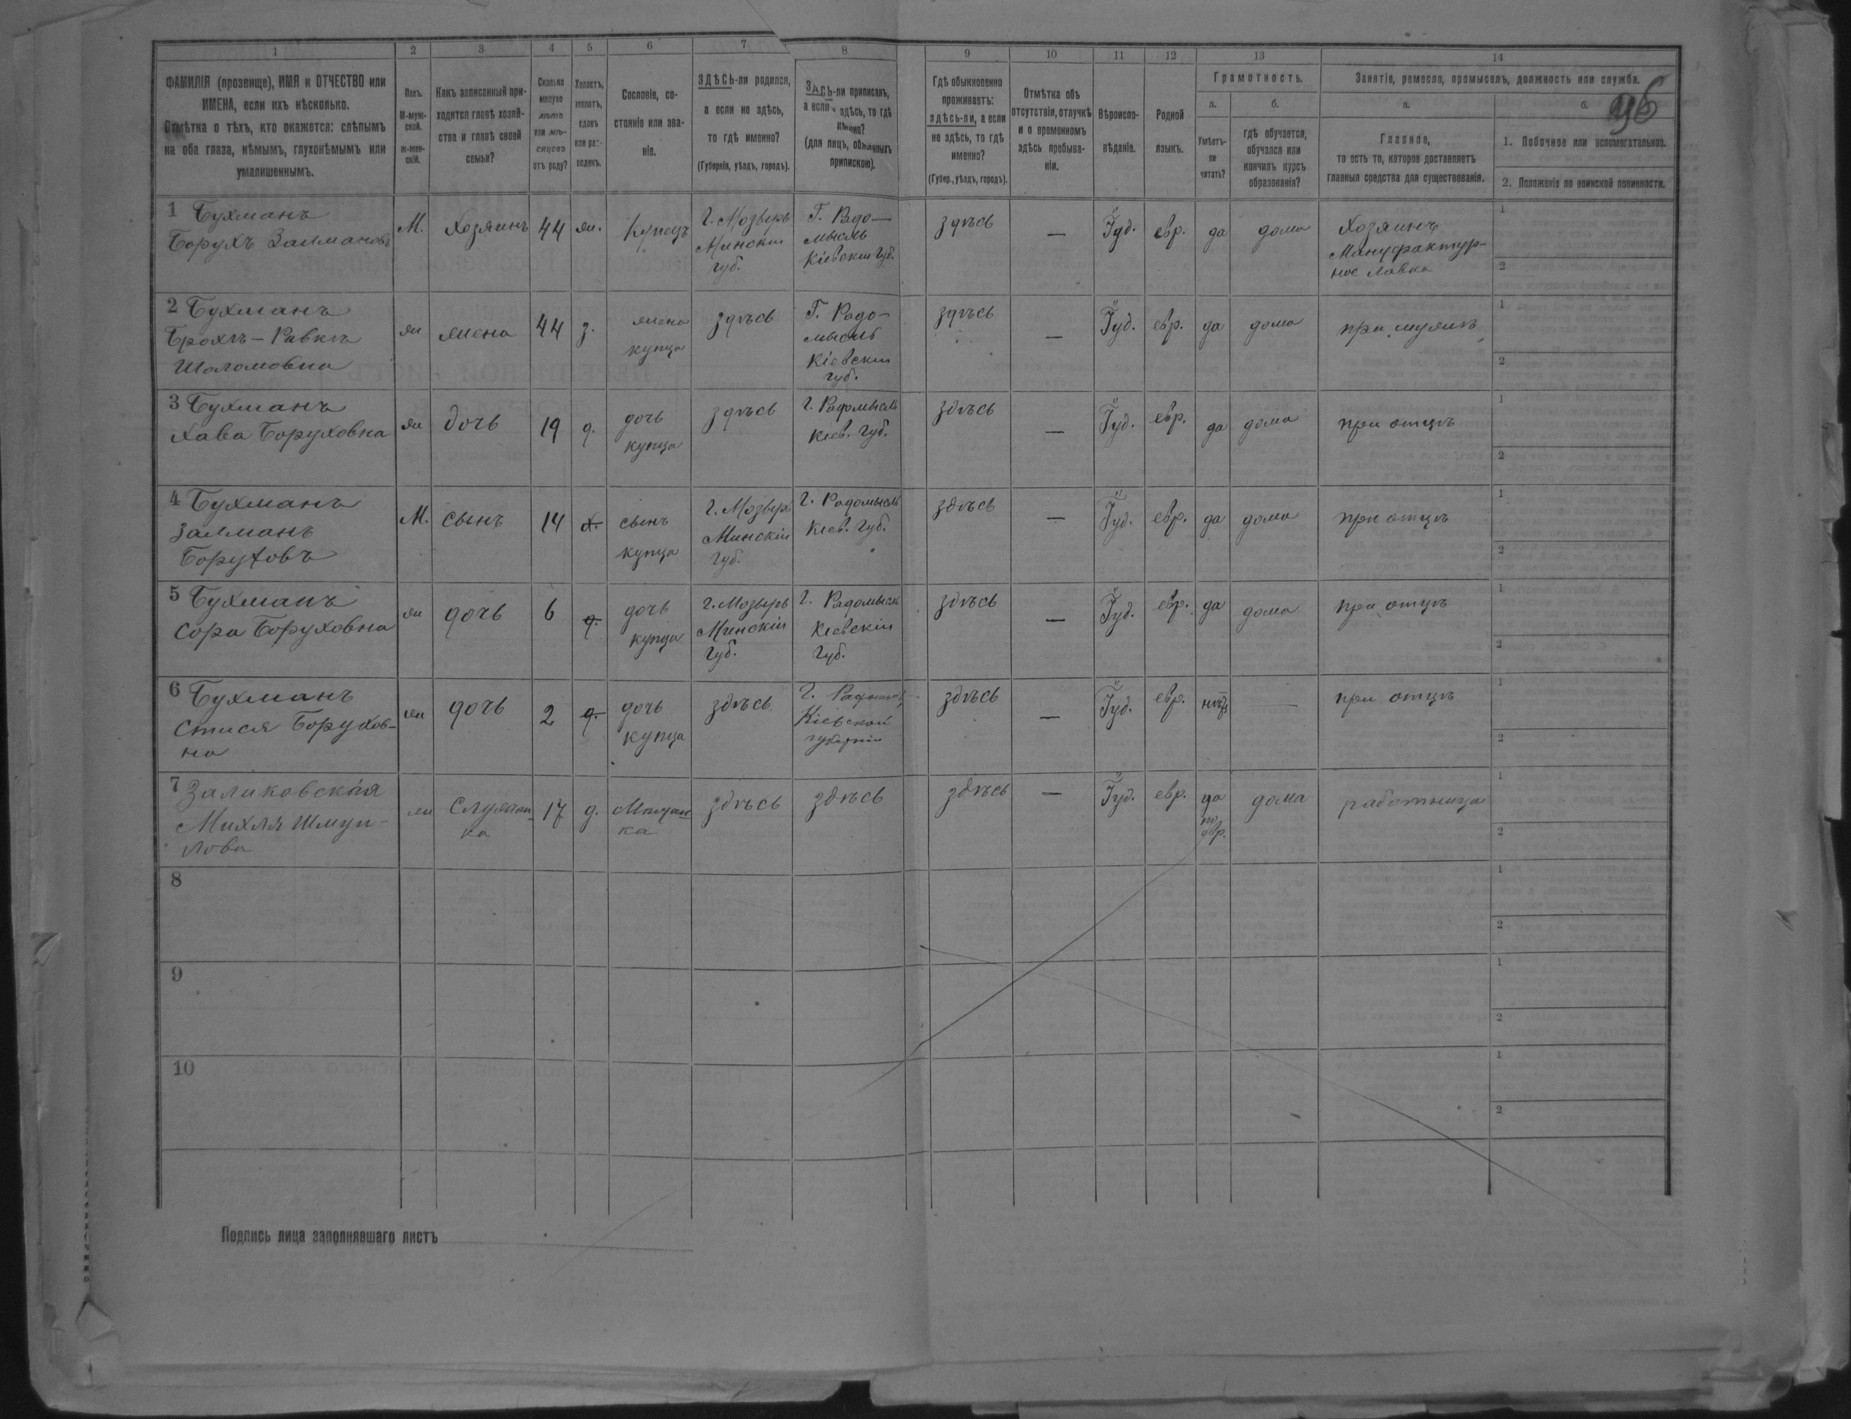 1 2 3 4 5 6 7 8 9 10 11 12 13 14
ФАМИЛІЯ (прозвище), ИМЯ и ОТЧЕСТВО или
ИМЕНА, если ихъ нѣсколько.
Отмѣтка о тѣхъ, кто окажется: слѣпымъ
на оба глаза, нѣмымъ, глухонѣмымъ или
умалишеннымъ.
Полъ.
М-муж-
ской.
ж-жен-
скій.
Какъ записанный при-
ходится главѣ хозяй-
ства и главѣ своей
семьи?
Сколько
минуло
лѣтъ
или мѣ-
сяцевъ
отъ роду?
Холостъ,
женатъ,
вдовъ
или раз-
веденъ.
Сословіе, со-
стояніе или зва-
ніе.
ЗДѢСЬ-ли родился,
а если не здѣсь,
то гдѣ именно?
(Губернія, уѣздъ, городъ).
ЗДѢСЬ-ли приписанъ,
а если не здѣсь, то гдѣ
именно?
(для лицъ, обязанныхъ
припискою).
Гдѣ обыкновенно
проживаетъ:
здѣсь-ли, а если
не здѣсь, то гдѣ
именно?
(Губер., уѣздъ, городъ).
Отмѣтка объ
отсутствіи, отлучкѣ
и о временномъ
здѣсь пребыва-
ніи.
Вѣроиспо-
вѣданіе.
Родной
языкъ.
Грамотность.
а.
Умѣетъ-
ли
читать?
б.
гдѣ обучается,
обучался или
кончилъ курсъ
образованія?
Занятіе, ремесло, промыселъ, должность или служба.
а.
Главное,
то есть то, которое доставляетъ
главныя средства для существованія.
б.
1. Побочное или вспомогательное.
2. Положеніе по воинской повинности.
1 Бухманъ
Борухъ Залмановъ
М. хозяинъ 44 ж. Купецъ
г. Мозырь
Минскій
губ.
Г. Радо-
мысль
Кіевскій губ.
здѣсь — Іуд. евр. да дома
Хозяинъ
Мануфактур-
ное лавка
1
2
2 Бухманъ
Брохъ-Равкъ
Шоломовна
ж жена 44 з.
жена
купца
здѣсь
Г. Радо-
мысль
Кіевскій
губ.
здѣсь — Іуд. евр. да дома при мужѣ
1
2
3 Бухманъ
Хава Боруховна
ж дочь 19 д.
дочь
купца
здѣсь
г. Радомысль
Кіев. губ.
здѣсь — Іуд. евр. да дома при отцѣ
1
2
4 Бухманъ
Залманъ
Боруховъ
М. сынъ 14 х.
сынъ
купца
г. Мозырь
Минскій
губ.
г. Радомысль
Кіев. губ.
здѣсь — Іуд. евр. да дома при отцѣ
1
2
5 Бухманъ
Сора Боруховна
ж дочь 6 д.
дочь
купца
г. Мозырь
Минскій
губ.
г. Радомысль
Кіевскій
губ.
здѣсь — Іуд. евр. да дома при отцѣ
1
2
6 Бухманъ
Стися Борухов-
на
ж дочь 2 д.
дочь
купца
здѣсь
г.
Кіевской
губерніи
здѣсь — Іуд. евр. нѣтъ — при отцѣ
1
2
7 Заликовская
Михля Шмуй-
лова
ж
Служан-
ка
17 д.
Мѣщан-
ка
здѣсь здѣсь здѣсь — Іуд. евр.
да
по
евр.
дома работница
1
2
8
1
2
9
1
2
10
1
2
Подпись лица заполнявшаго листъ